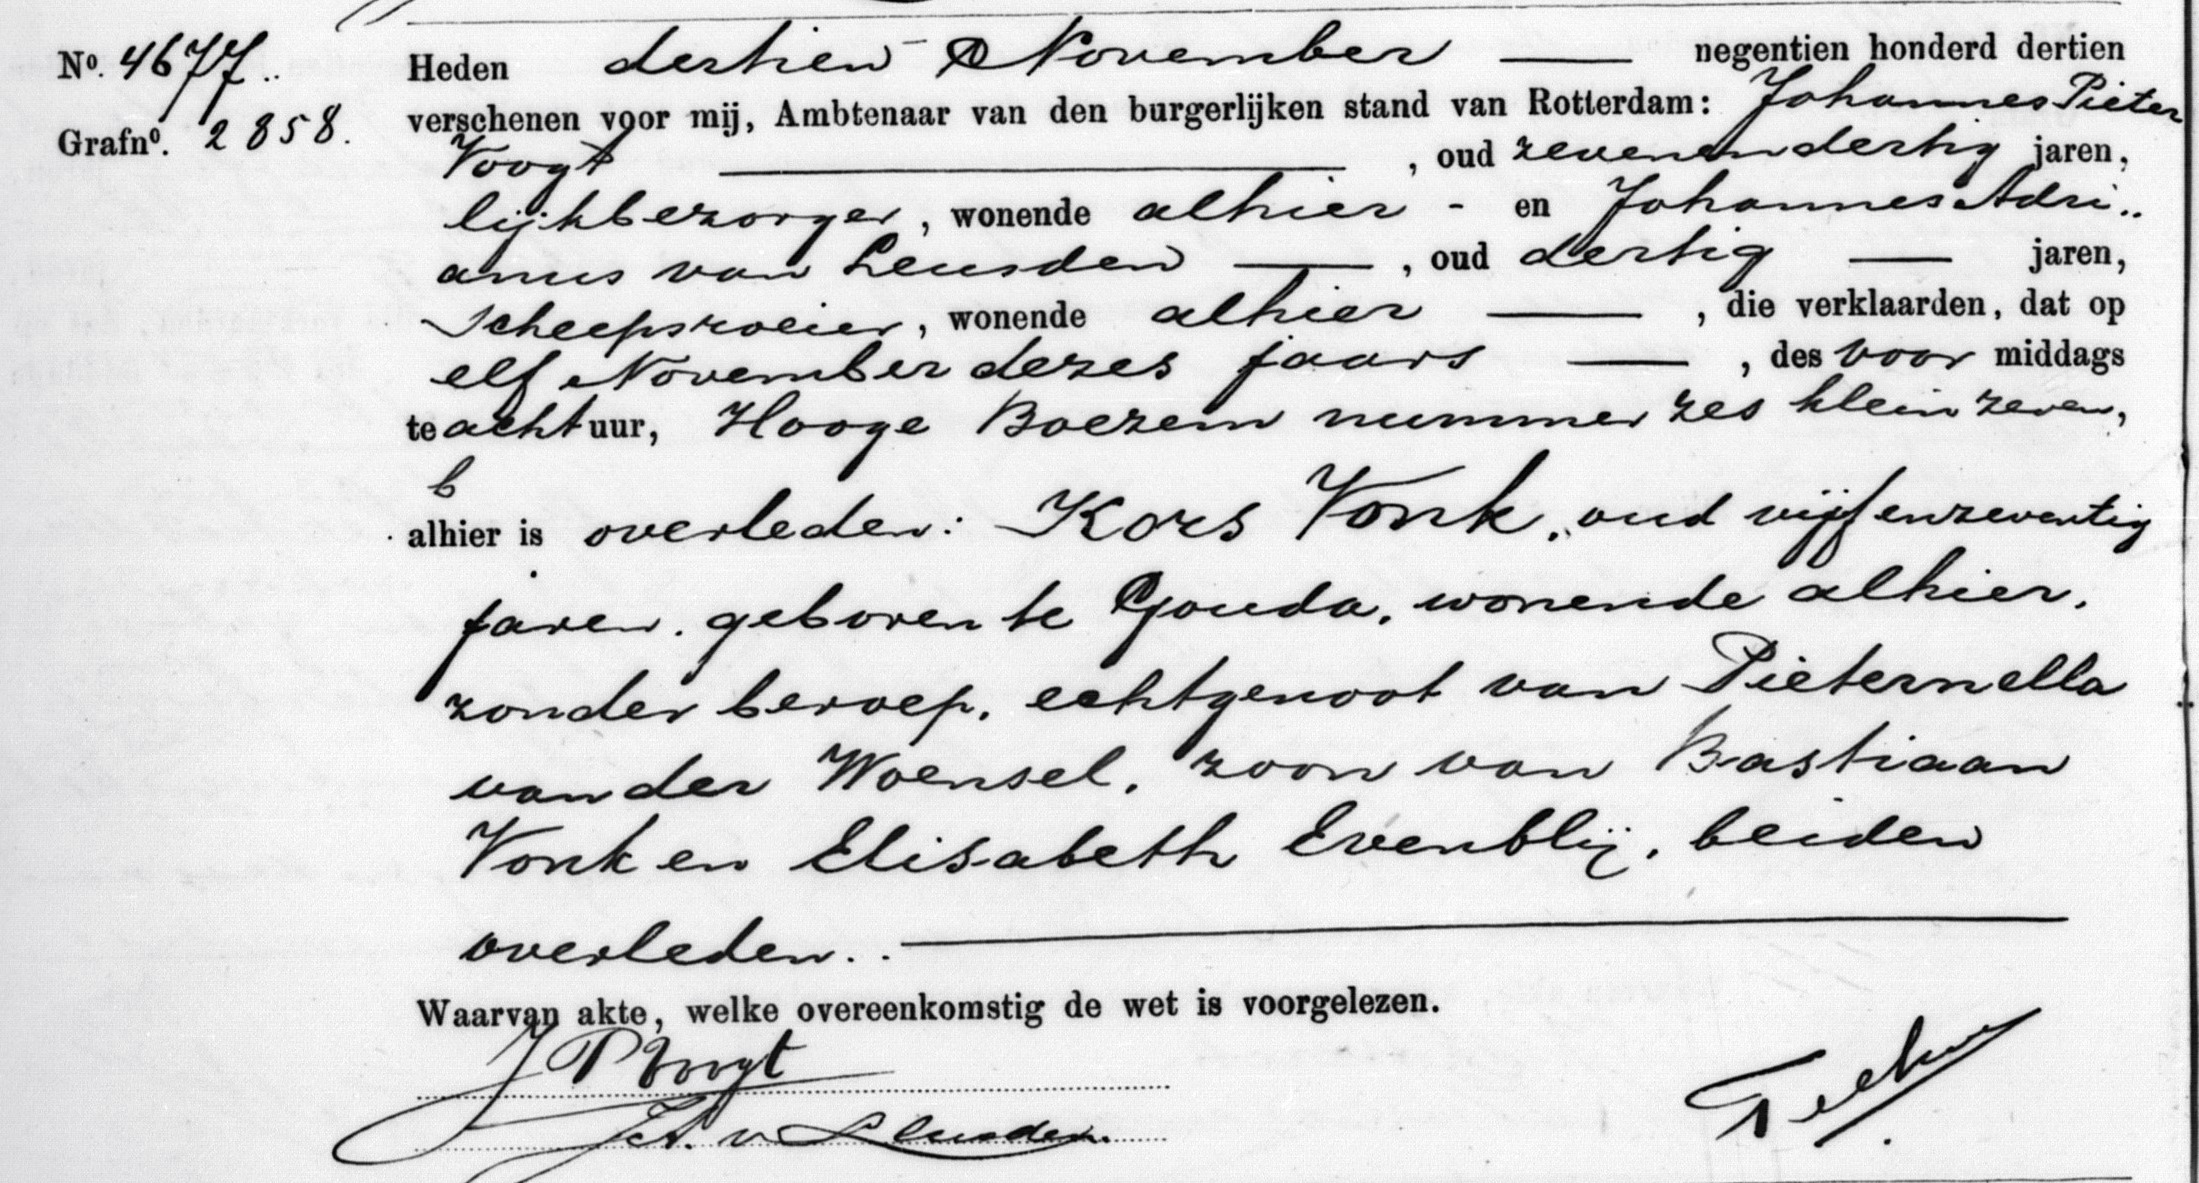 No. 4677.
Heden dertien November negentien honderd dertien
Grafno. 2858.
verschenen voor mij, Ambtenaar van den burgerlijken stand van Rotterdam: Johannes Pieter
Voogt, oud zevenendertig jaren,
lijkbezorger, wonende alhier - en Johannes Adri..
anus van Leusden, oud dertig jaren,
scheepsroeier, wonende alhier, die verklaarden, dat op
elf November dezes jaars, des voor middags
te acht uur, Hooge Boezem nummer zes klein zeven,
b
alhier is overleden: Kors Vonk, oud vijfenzeventig
jaren. geboren te Gouda, wonende alhier,
zonder beroep, echtgenoot van Pieternella
van der Woensel, zoon van Bastiaan
Vonk en Elisabeth Evenblij, beiden
overleden..
Waarvan akte, welke overeenkomstig de wet is voorgelezen.
J P Voogt
v Leusden.